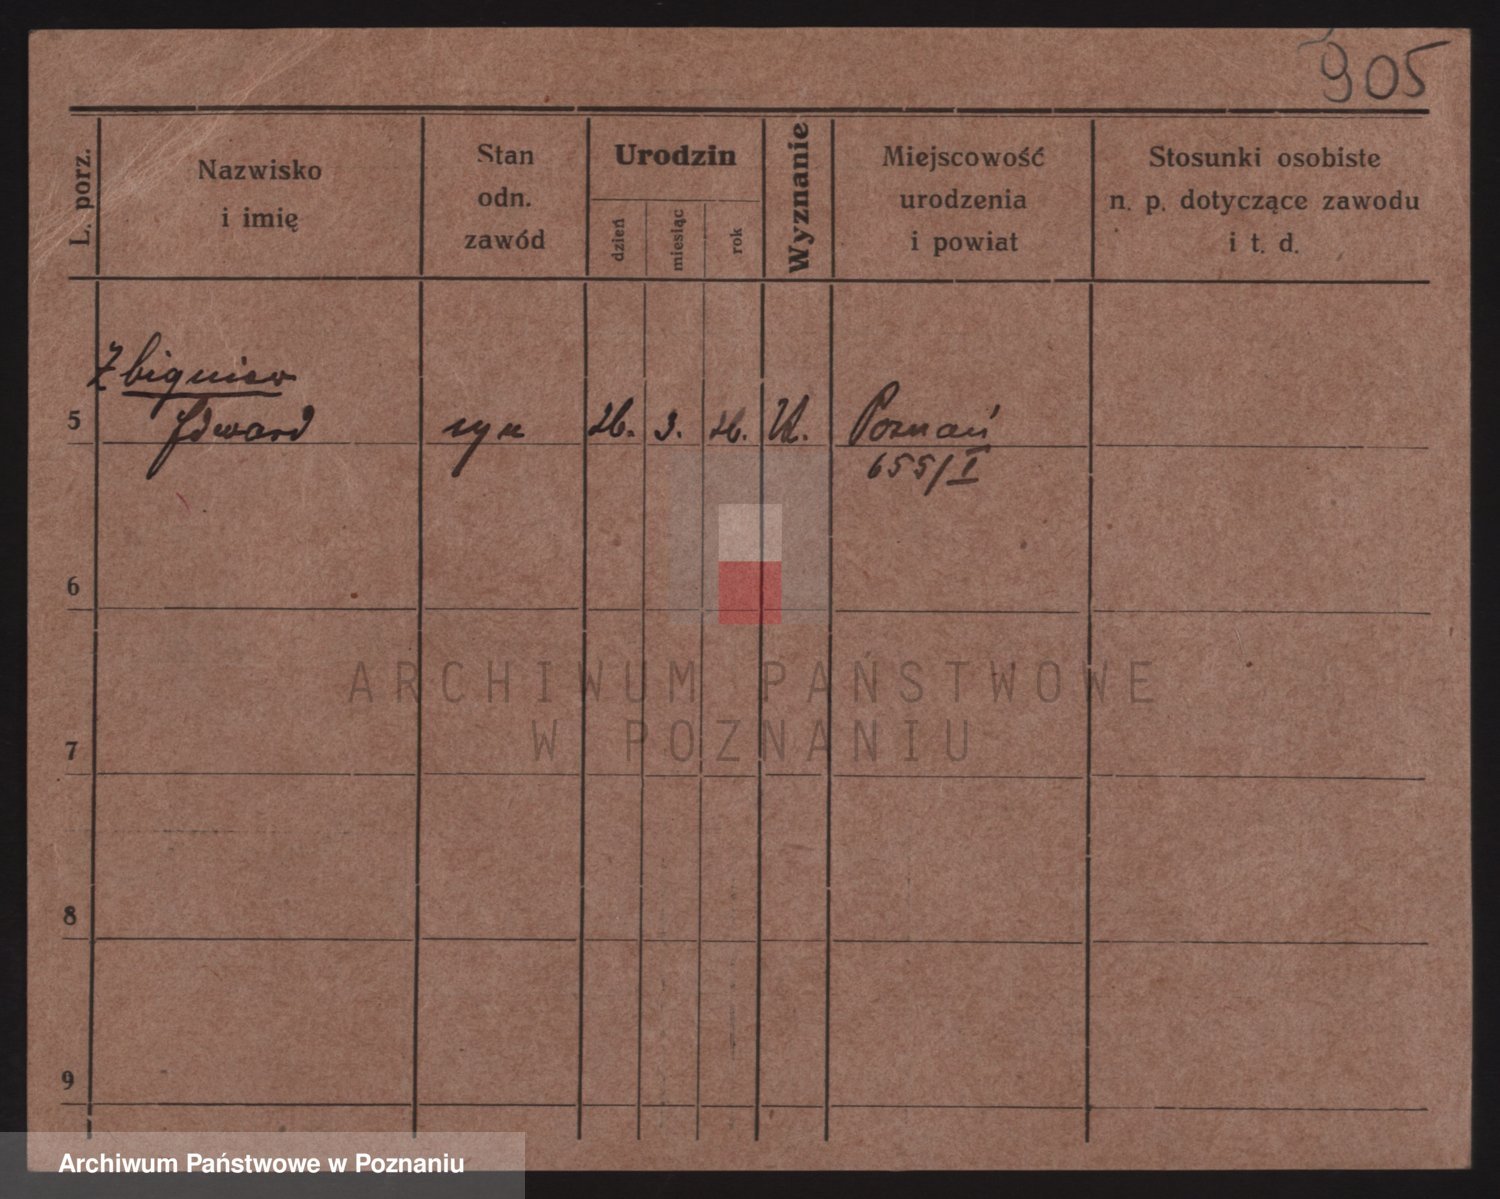 905
L. porz.
Nazwisko
i imię
Stan
odn.
zawód
Urodzin
dzień
miesiąc
rok
Wyznanie
Miejscowość
urodzenia
i powiat
Stosunki osobiste
n. p. dotyczące zawodu
i t. d.
Zbigniew
5 Edward syn 26. 3. 26. Poznań
655/I
6
ARCHIWUM PAŃSTWOWE
W POZNANIU
7
8
9
Archiwum Państwowe w Poznaniu